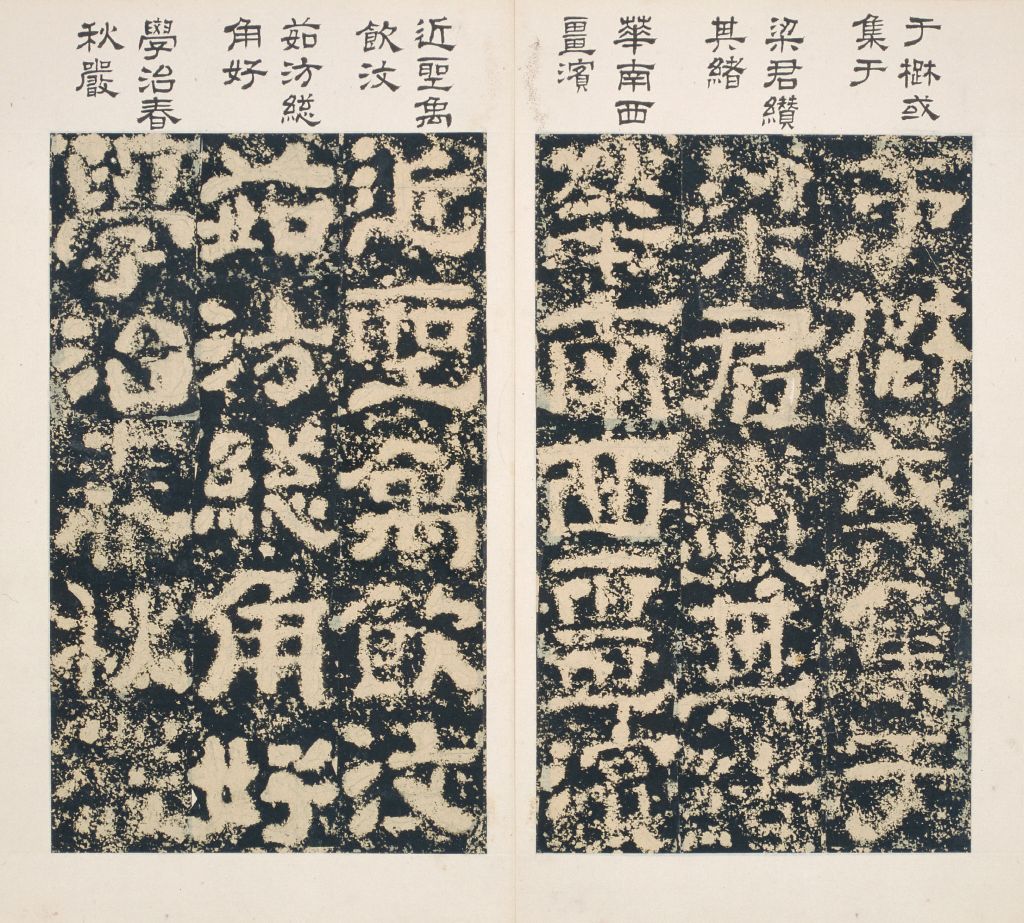 于楙或
集于
梁君纘
其緒
華南西
畺濱
近聖禹
飲汶
茹汸緫
角好
學治春
秋嚴
于楙或集于
梁君纘其緒
華南西畺濱
近聖禹飲汶
茹汸緫角好
學治春秋嚴